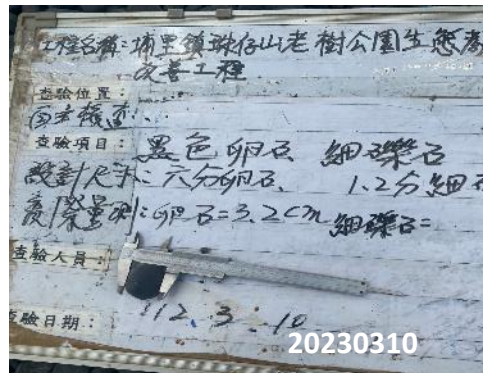 工程名稱：埔里鎮珠仔山老樹公園生態
改善工程
查驗位置：
查驗項目：黑色卵石 細礫石
設計尺寸：六分卵石、 1.2分細石
實際量測：卵石=3.2cm 細礫石=
查驗人員：
查驗日期：112.3.10
20230310